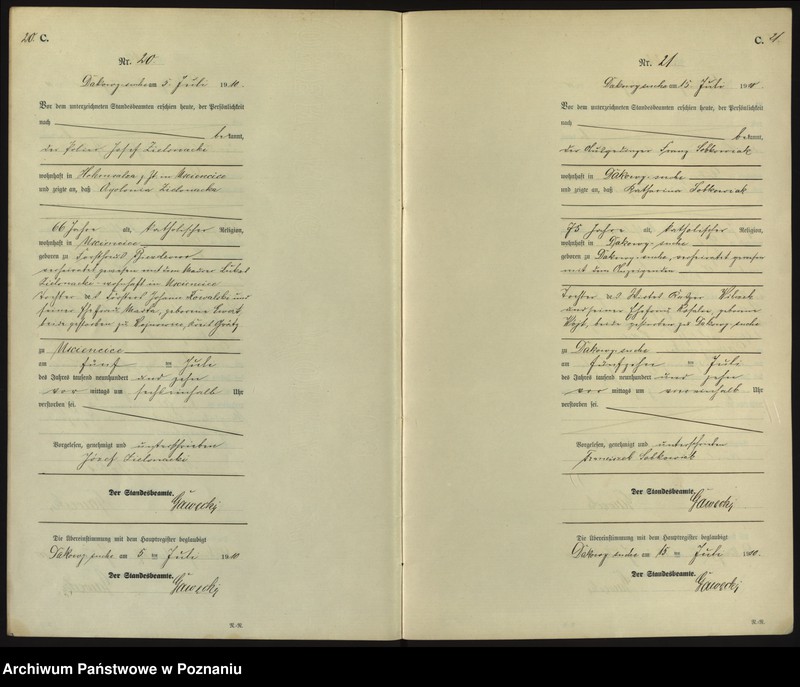 20. C.
Nr. 20
Dakowy mokre am 5. Juli 1910.
Vor dem unterzeichneten Standesbeamten erschien heute, der Persönlichkeit
nach
bekannt,
der Josef Zielonacki
wohnhaft in
und zeigte an, daß Apolonia Zielonacka
66 Jahre alt, katholischer Religion,
wohnhaft in
geboren zu Forsthaus
verheiratet gewesen mit dem
Zielonacki wohnhaft in
Tochter des Försters Johann Kowalski und
seiner Ehefrau geborene
beide zu Kreis Grätz
zu
am fünf ten Juli
des Jahres tausend neunhundert und zehn
vor mittags um Uhr
verstorben sei.
Vorgelesen, genehmigt und unterschrieben
Józef Zielonacki
Der Standesbeamte.
Gawecki
Die Übereinstimmung mit dem Hauptregister beglaubigt
Dakowy mokre am 5 ten Juli 1910
Der Standesbeamte.
Gawecki
R.-R.
C. 21.
Nr. 21
Dakowy mokre am 15. Juli 1910.
Vor dem unterzeichneten Standesbeamten erschien heute, der Persönlichkeit
nach
bekannt,
der Ausgedinger Franz Sobkowiak
wohnhaft in Dakowy mokre
und zeigte an, daß Katharina Sobkowiak
75 Jahre alt, katholischer Religion,
wohnhaft in Dakowy mokre
geboren zu Dakowy mokre, verheiratet gewesen
mit dem Anzeigenden
Tochter des
und seiner Ehefrau Rosalie, geborene
beide zu Dakowy mokre
zu Dakowy mokre
am fünfzehn ten Juli
des Jahres tausend neunhundert und zehn
vor mittags um Uhr
verstorben sei.
Vorgelesen, genehmigt und unterschrieben
Franciszek Sobkowiak
Der Standesbeamte.
Gawecki
Die Übereinstimmung mit dem Hauptregister beglaubigt
Dakowy mokre am 15 ten Juli 1910.
Der Standesbeamte.
Gawecki
R.-R.
Archiwum Państwowe w Poznaniu